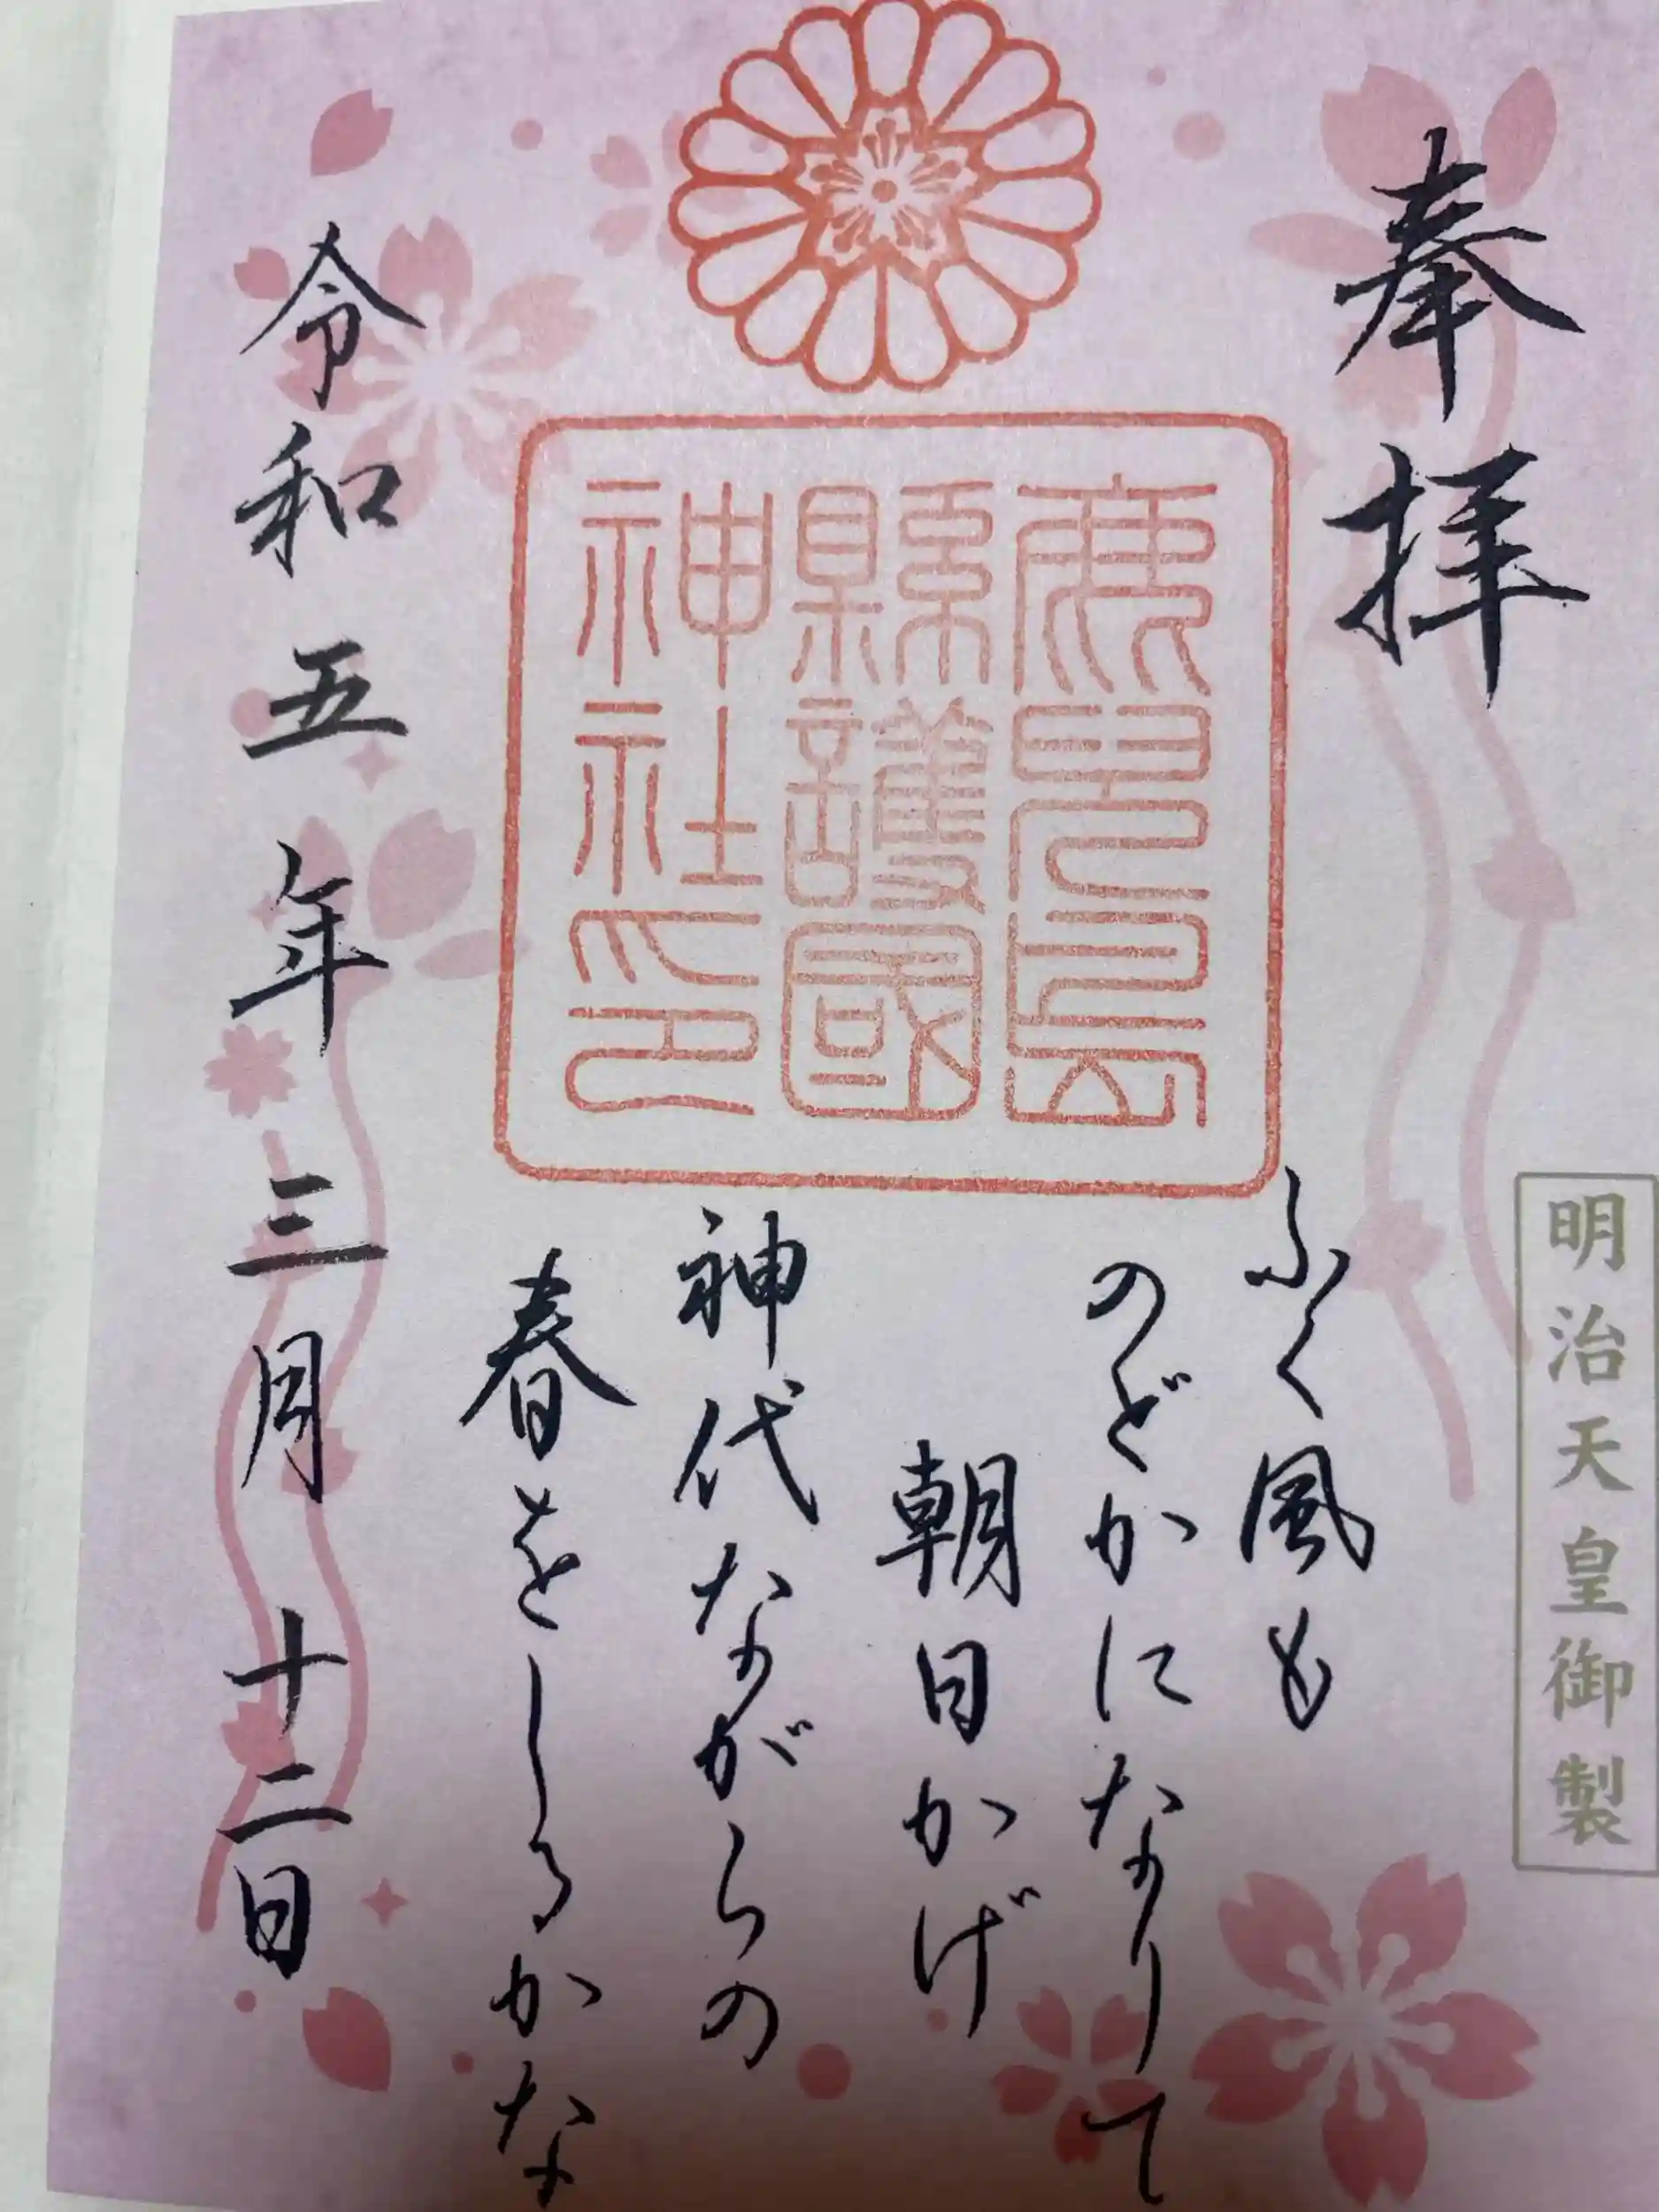 奉拝
明治天皇御製
鹿兒島
縣護國
神社印
ふく風も
のどかになりて
朝日かげ
神代ながらの
春をしるかな
令和五年三月十二日